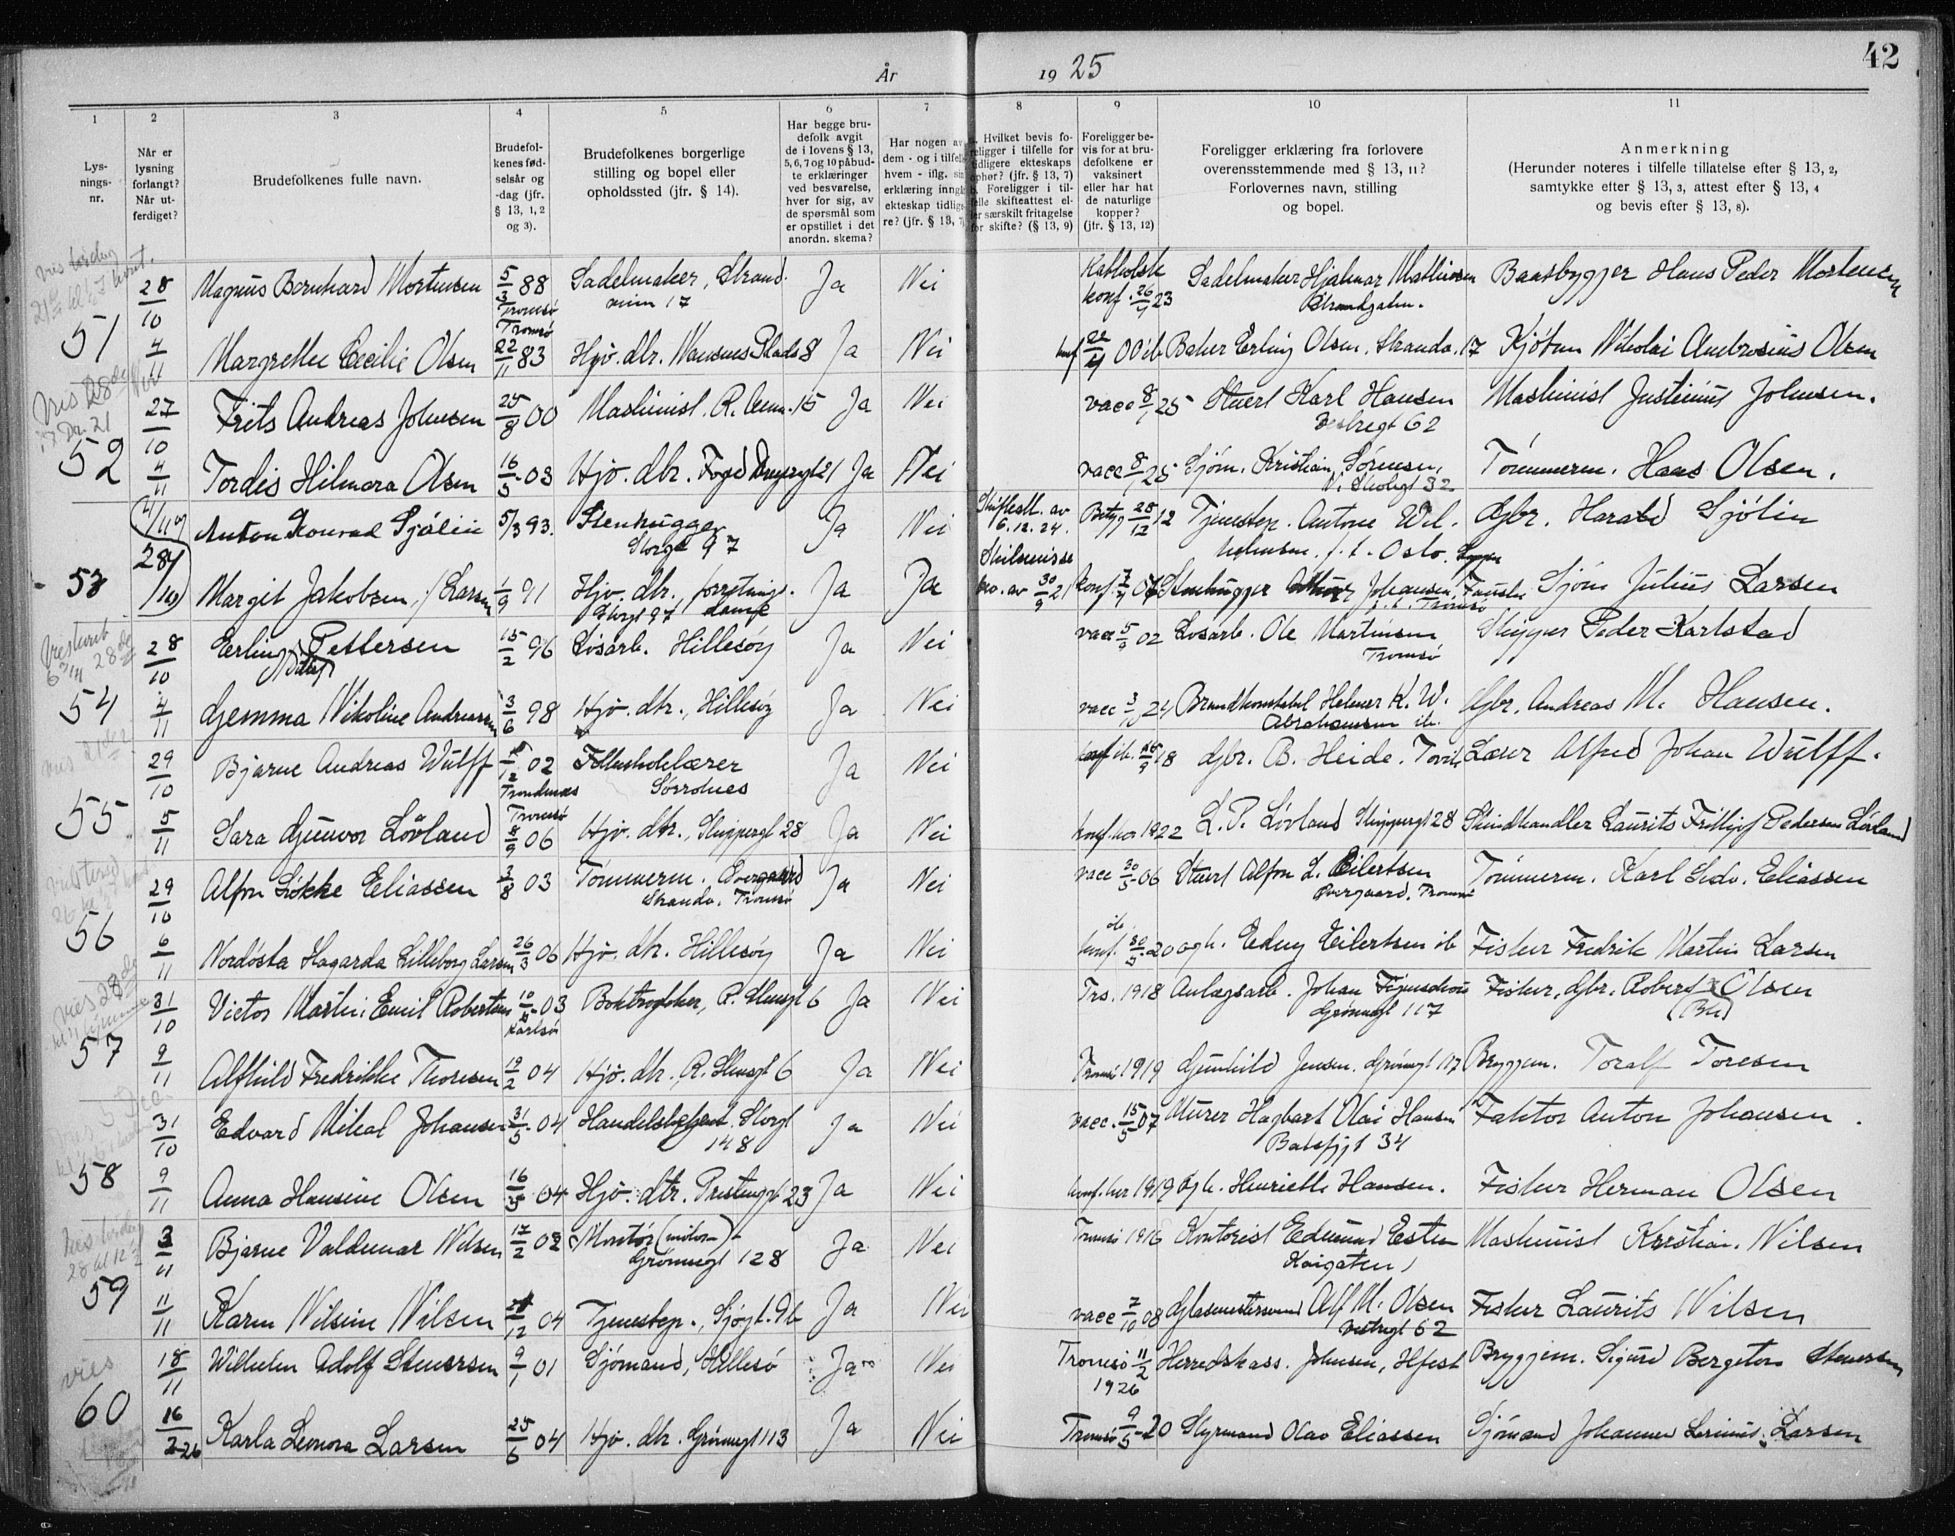 42
År 19 25
1 2 3 4 5 6 7 8 9 10 11
Lys-
nings-
nr.
Når er
lysning
forlangt?
Når ut-
ferdiget?
Brudefolkenes fulle navn.
Brudefol-
kenes fød-
selsår og
-dag (jfr.
§ 13, 1, 2
og 3).
Brudefolkenes borgerlige
stilling og bopel eller
opholdssted (jfr. § 14).
Har begge bru-
defolk avgit
de i lovens § 13,
5, 6, 7 og 10 påbud-
te erklæringer
ved besvarelse,
hver for sig, av
de spørsmål som
er opstillet i det
anordn. skema?
Har nogen av
dem - og i tilfelle
hvem - iflg. sin
erklæring inngått
ekteskap tidlige-
re? (jfr. § 13, 7)
Hvilket bevis fo-
religger i tilfelle for
tidligere ekteskaps
ophør? (jfr. § 13, 7)
b. Foreligger i til-
felle skifteattest el-
ler særskilt fritagelse
for skifte? (§ 13, 9)
Foreligger be-
vis for at bru-
defolkene er
vaksinert
eller har hat
de naturlige
kopper?
(jfr. § 13, 12)
Foreligger erklæring fra forlovere
overensstemmende med § 13, 11?
Forlovernes navn, stilling
og bopel.
Anmerkning
(Herunder noteres i tilfelle tillatelse efter § 13, 2,
samtykke efter § 13, 3, attest efter § 13, 4
og bevis efter § 13, 8).
51 28/10 Magnus Bernhard Mortensen 5/3 88 Tromsø Sadelmaker, Strand 17 Ja Nei Katholsk konf. 26/9 23 Sadelmaker Hjalmar Mathiesen Strandgaten. Baatbygger Hans Peder Mortensen
4/11 Margrethe Cecilie Olsen Tromsø 22/11 83 Hjv. dtr. Nansens Plads 8 Ja Nei konf 22/4 00 ib. Baker Erling Olsen. Strandv. 17 Kjøbm Nikolai Ambrosius Olsen
52 27/10 Frits Andreas Johnsen 25/8 00 Maskinist. R. 15 Ja Nei vacc 8/7 25 Stuert Karl Hansen Vestregt 62 Maskinist Justinus Johnsen.
4/11 Tordis Hilmora Olsen 16/5 03 Hjv. dtr. Foged Dreyersgt 21 Ja Nei vacc 8/7 25 Sjøm. Kristian Sørensen, V. Skolegt 32 Tømmerm. Haas Olsen.
53 Anton Konrad Sjølin 5/3 93. Stenhugger Storgt 97 Ja Nei Skifteatt. av 6.12.24. Betyg 28/12 12 Tjenestep. Antone Wil- f. t. Oslo. Gbr. Harald Sjölin
28/10 Margit Jakobsen, f. Larsen 1/9 91 Hjv. dtr. Storgt 97 Ja Ja Skilsmisse av 30/9 21 konf. 7/7 07 Stenhugger Johansen, f. t. Tromsø Sjøm Julius Larsen
54 28/10 Erling Pettersen 15/2 96 Løsarb. Hillesøy Ja Nei vacc 5/9 02 Løsarb. Ole Martinsen Tromsø Skipper Peder Karlstad
4/11 Gjemma Nikoline Andreassen 3/6 98 Hjv. dtr., Hillesøy Ja Nei vacc 3/10 24 Brandkonstabel Helmer K. W. Abrahamsen ib. Gbr. Andreas M. Hansen.
55 29/10 Bjarne Andreas Wulff 02 Trondenes Folkeskolelærer Sørrolnes Ja Nei konf ib. 18 Gbr. B. Heide. Lærer Alfred Johan Wulff.
5/11 Sara Gunvor Løvland Tromsø 8/9 06 Hjv. dtr., Skippergt 28 Ja Nei konf. her 1922 L. P. Løvland Skippergt 28 Skindhandler Laurits Fritjof Pedersen Løvland
56 29/10 Alfon Løkke Eliassen 3/8 03 Tømmerm. Overgaard Strandv. Tromsø Ja Nei vacc 30/5 06 Stuert Alfon L. Eilertsen Overgaard, Tromsø Tømmerm. Karl Ludv. Eliassen
6/11 Nordösta Hagarda Lilleborg Larsen 26/3 06 Hjv. dtr. Hillesøy Ja Nei ib konf. 30/5 20 og h. Edny Eilertsen ib Fisker Fredrik Martin Larsen
57 31/10 Victor Martin Emil Robertsen 10/8 03 Karlsø Boktrykker, R. 6 Ja Nei Trs. 1918 Anlægsarb. Johan Figenschou Grønnegt 117 Fisker, Gbr. Robert Olsen
9/11 Alfhild Fredrikke Thoresen 19/2 04 Hjv. dtr. R. 6 Ja Nei Tromsø 1919 Gunhild Jensen. Grønnegt 117 Bryggem. Toralf Toresen
58 31/10 Edvard Mikal Johansen 31/5 04 Handelsbetjent Storgt 148 Ja Nei vacc. 15/5 07 Murer Hagbart Olai Hansen Balsfjgt 34 Faktor Anton Johansen.
9/11 Anna Hansine Olsen 16/5 04 Hjv. dtr. Prestenggt 23 Ja Nei konf. her 1919 Og h. Henriette Hansen. Fisker Herman Olsen
59 3/11 Bjarne Valdemar Nilsen 17/2 02 Montör (motor) Grønnegt 128 Ja Nei Tromsø 1916 Kontorist Edmund Esten Kaigaten Maskinist Kristian Nilsen
11/11 Karen Nilsine Nilsen 04 Tjenestep., Sjøgt. 9b Ja Nei vacc 7/10 08 Glasmestersvend Alf M. Olsen Vestregt 62 Fisker Laurits Nilsen
60 18/11 Wilhelm Adolf Steversen 9/1 01 Sjømand, Hillesø Ja Nei Tromsø 11/2 1926 Herredskass. Johnsen, Bryggem. Sigurd Bergeton
16/2 26 Karla Leonora Larsen 25/6 04 Hjv. dtr. Grønnegt 113 Ja Nei Tromsø 9/5 20 Styrmand Olav Eliassen Sjømand Johannes Larsen